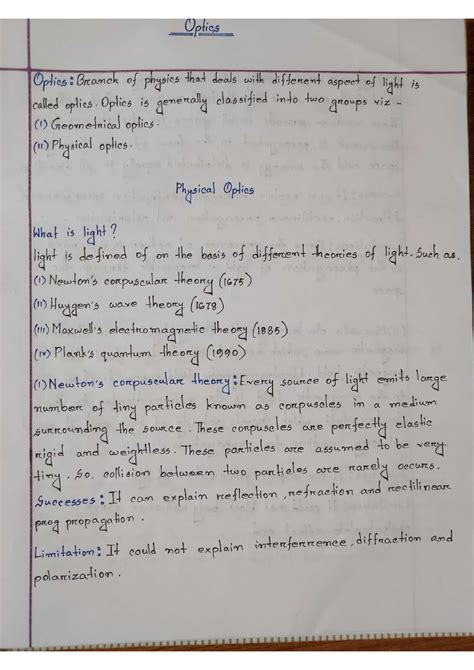 Optics
Optics: Branch of physics that deals with different aspect of light is
called optics. Optics is generally classified into two groups viz -
(I) Geometrical optics.
(II) Physical optics.
Physical Optics
What is light?
light is defined of on the basis of different theories of light. Such as.
(I) Newton's corpuscular theory (1675)
(II) Huygen's wave theory (1678)
(III) Maxwell's electromagnetic theory (1885)
(IV) Plank's quantum theory (1990)
(I) Newton's corpuscular theory: Every source of light emits large
number of tiny particles known as corpuscles in a medium
surrounding the source. These corpuscles are perfectly elastic
rigid and weightless. These particles are assumed to be very
tiny. So, collision between two particles are rarely occurs.
Successes: It can explain reflection, refraction and rectilinear
prog propagation.
Limitation: It could not explain interferrence, diffraction and
polarization.